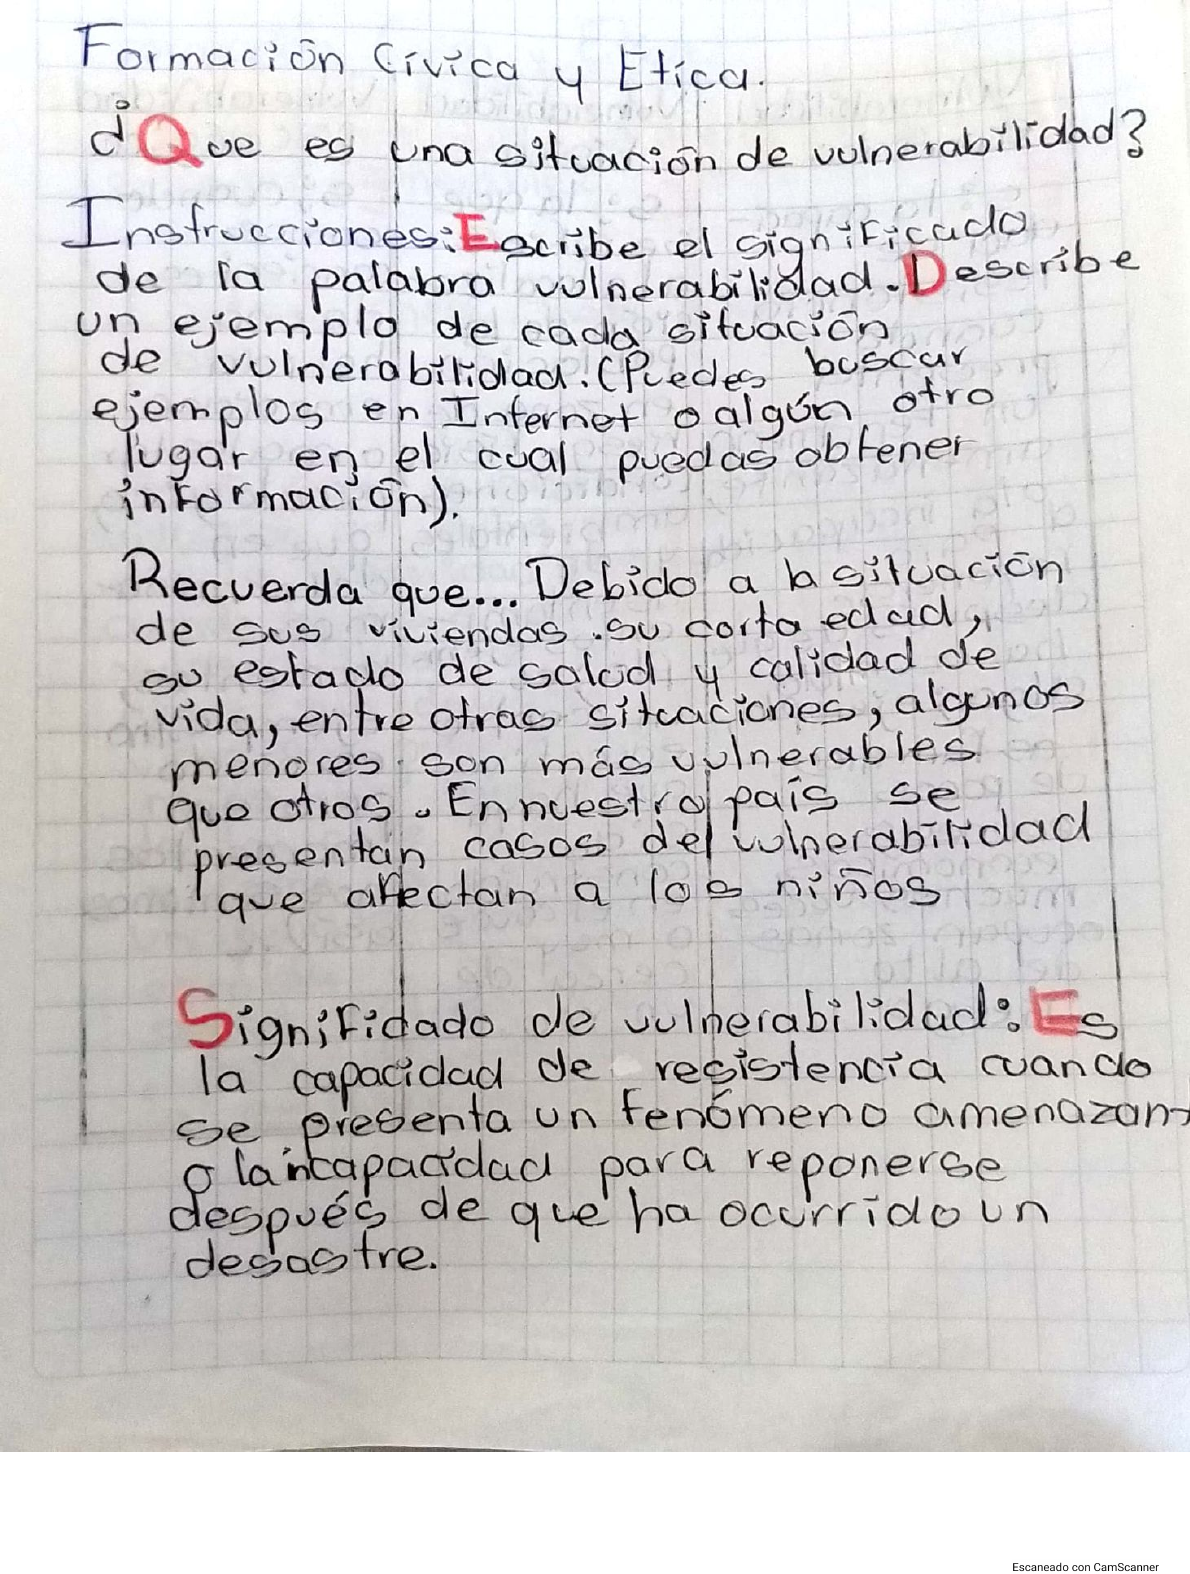 Formación Cívica y Etica.
¿Que es una situación de vulnerabilidad?
Instrucciones: Escribe el significado
de la palabra vulnerabilidad. Describe
un ejemplo de cada situación
de vulnerabilidad. (Puedes buscar
ejemplos en Internet o algún otro
lugar en el cual puedas obtener
información).
Recuerda que... Debido a la situación
de sus viviendas. su corta edad,
su estado de salud y calidad de
vida, entre otras situaciones, algunos
menores son más vulnerables
que otros. En nuestro país se
presentan casos de vulnerabilidad
que afectan a los niños
Significado de vulnerabilidad: Es
la capacidad de resistencia cuando
se presenta un fenómeno amenazan
o la incapacidad para reponerse
después de que ha ocurrido un
desastre.
Escaneado con CamScanner